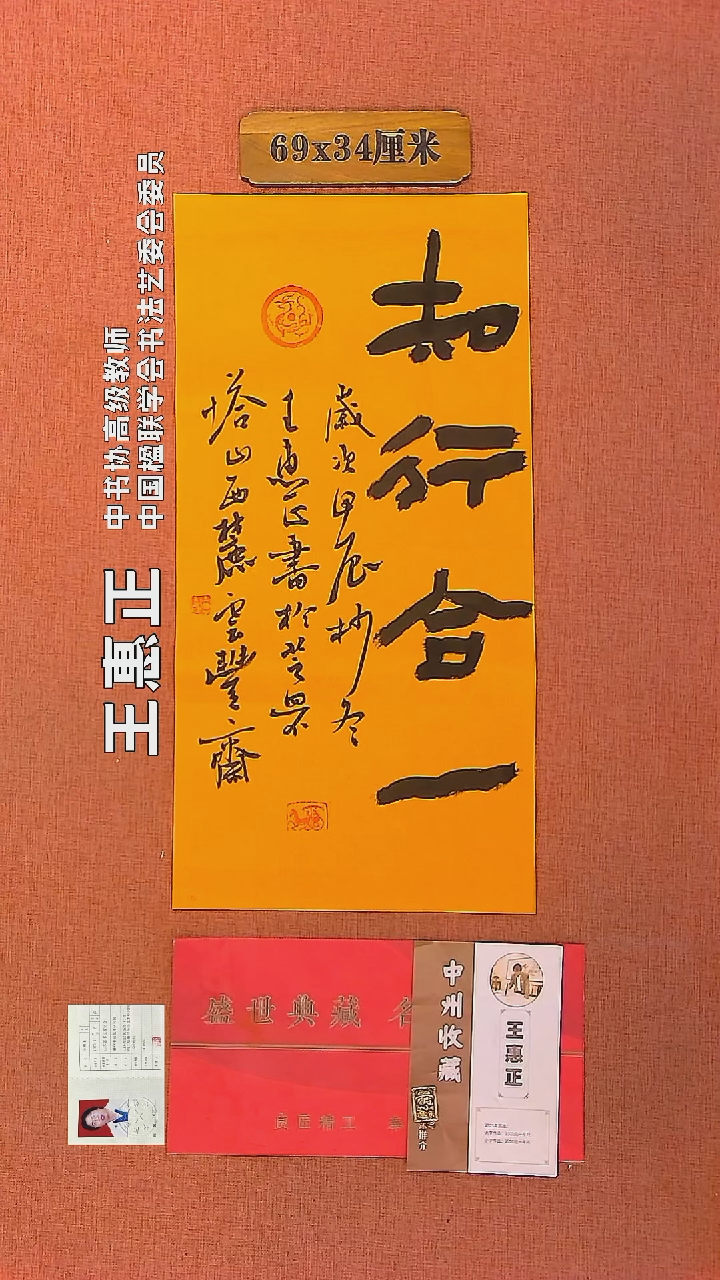 69x34厘米
知行合一
歲次甲辰杪冬
王惠正書於芝罘
塔山西麓雲豐齋
王惠正
中书协高级教师
中国楹联学会书法艺委会委员
盛世典藏
良匠精工
中州收藏
王惠正